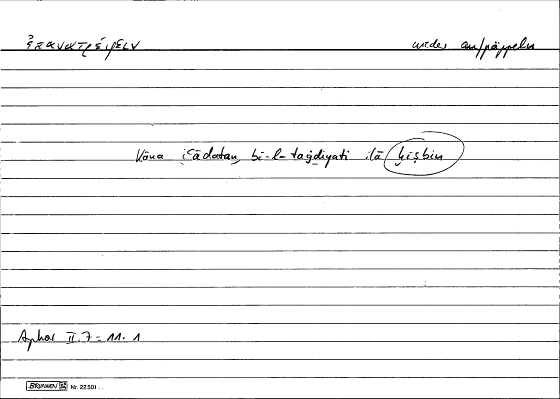 ἐπανατρέφειν wieder aufpäppeln
kāna iʿādatan bi-l-taġdiyati ilā ḫiṣbin
Aphor II. 7 = 11. 1
BRUNNEN Nr. 22501